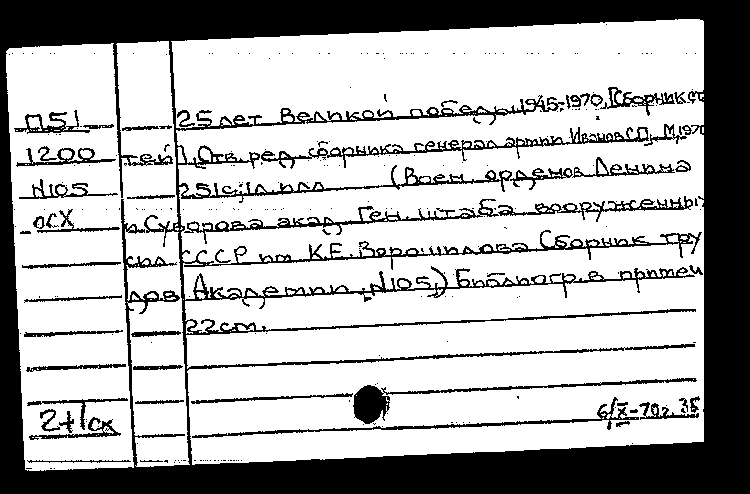 П51 25 лет Великой победы 1945-1970. [Сборник ста
1200 тей]. Отв. ред. сборника генерал армии Иванов С.П. М, 1970
N105 251с; 1л. илл (Воен. орденов Ленина
ОСХ и Суворова акад. Ген. штаба вооруженных
сил СССР им К.Е. Ворошилова Сборник тру
дов Академии, N105,) Библиогр. в примеч
22 см.
2+1ск 6/X-70г. 35